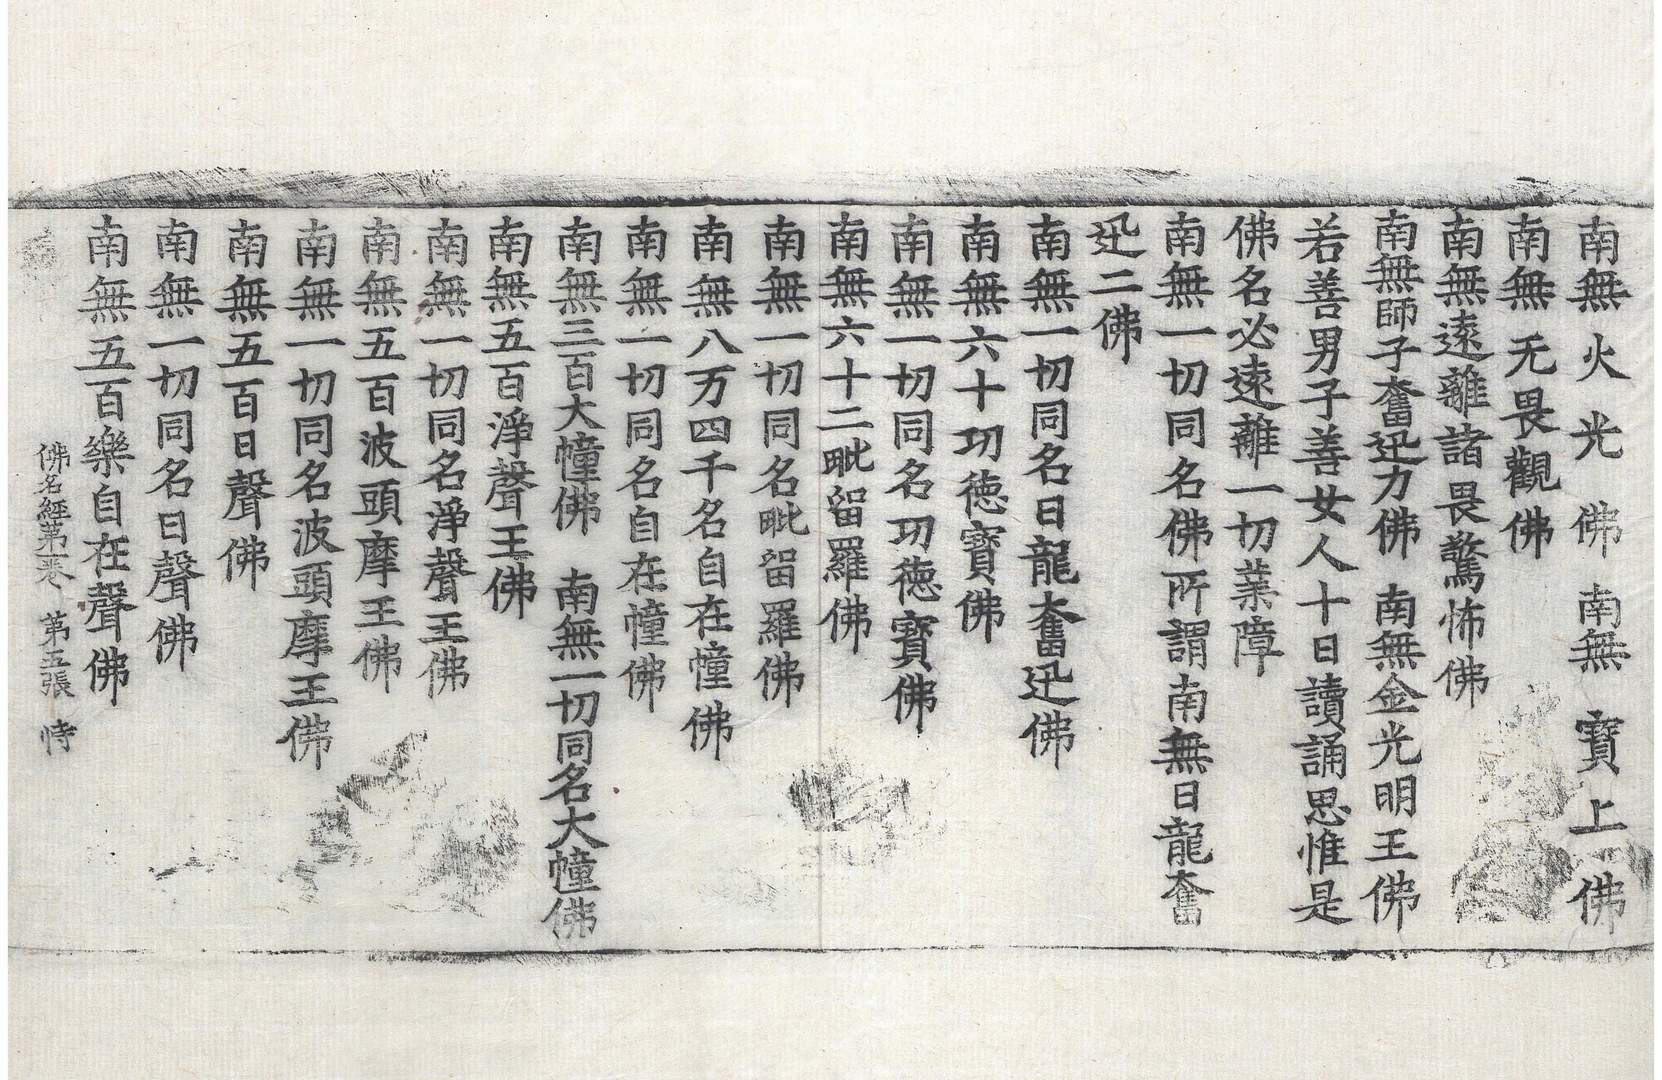 南無火光佛 南無寶上佛
南無无畏觀佛
南無遠離諸畏驚怖佛
南無師子奮迅力佛 南無金光明王佛
若善男子善女人十日讀誦思惟是
佛名必遠離一切業障
南無一切同名佛所謂南無日龍奮
迅二佛
南無一切同名日龍奮迅佛
南無六十功德寶佛
南無一切同名功德寶佛
南無六十二毗留羅佛
南無一切同名毗留羅佛
南無八万四千名自在幢佛
南無一切同名自在幢佛
南無三百大幢佛 南無一切同名大幢佛
南無五百淨聲王佛
南無一切同名淨聲王佛
南無五百波頭摩王佛
南無一切同名波頭摩王佛
南無五百日聲佛
南無一切同名日聲佛
南無五百樂自在聲佛
佛名經第一卷 第五張 恃